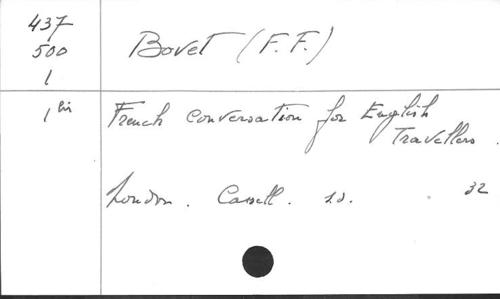 437
500
1
Bovet (F.F.)
1 bis
French conversation for English
Travellers.
London. Cassell. s.d.
32